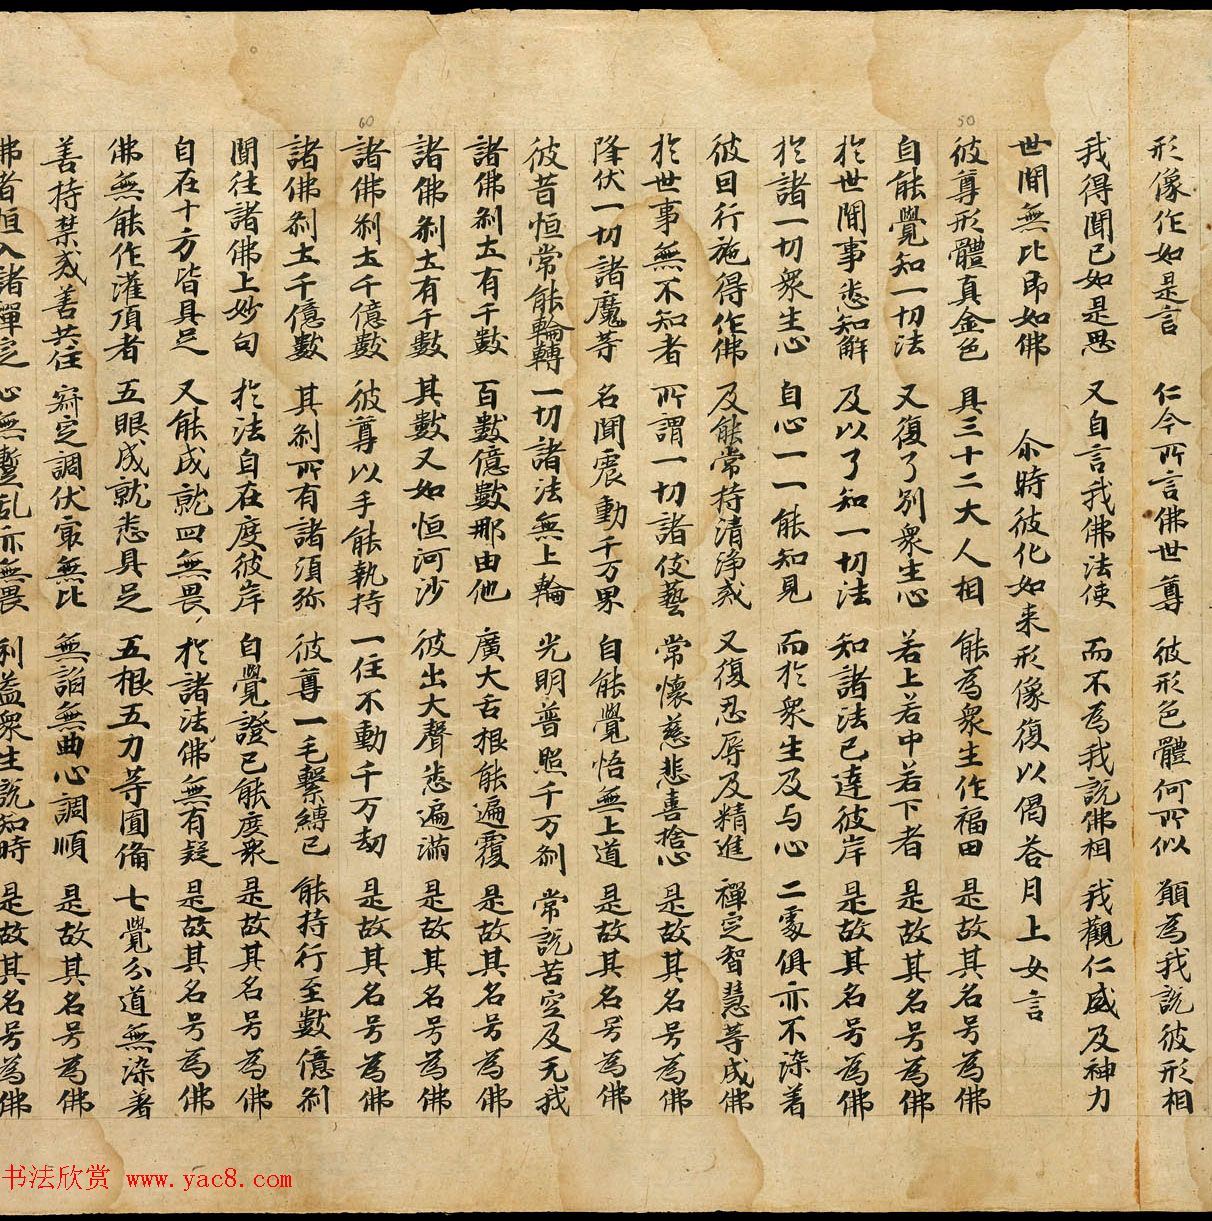 50
60
形像作如是言 仁今所言佛世尊 彼形色體何所似 願為我説彼形相
我得聞已如是思 又自言我佛法使 而不為我説佛相 我觀仁威及神力
世間無比即如佛 尒時彼化如来形像復以偈荅月上女言
彼尊形體真金色 具三十二大人相 能為衆生作福田 是故其名号為佛
自能覺知一切法 又復了别衆生心 若上若中若下者 是故其名号為佛
於世間事悉知解 及以了知一切法 知諸法已達彼岸 是故其名号為佛
於諸一切衆生心 自心一一能知見 而於衆生及与心 二處俱亦不染着
彼曰行施得作佛 及能常持清淨戒 又復忍辱及精進 禪定智慧等成佛
於世事無不知者 所謂一切諸伎藝 常懷慈悲喜捨心 是故其名号為佛
降伏一切諸魔等 名聞震動千万界 自能覺悟無上道 是故其名号為佛
彼昔恒常能輪轉 一切諸法無上輪 光明普照千万刹 常説苦空及无我
諸佛刹土有千數 百數億數那由他 廣大舌根能遍覆 是故其名号為佛
諸佛刹土有千數 其數又如恒河沙 彼出大聲悉遍滿 是故其名号為佛
諸佛刹土千億數 彼尊以手能執持 一住不動千万劫 是故其名号為佛
諸佛刹土千億數 其刹所有諸須弥 彼尊一毛繫縛已 能持行至數億刹
聞往諸佛上妙句 於法自在度彼岸 自覺證已能度衆 是故其名号為佛
自在十方皆具足 又能成就四無畏 於諸法佛無有疑 是故其名号為佛
佛無能作灌頂者 五眼成就悉具足 五根五力等圓俻 七覺分道無染著
善持禁戒善共住 寂定調伏冣無比 無諂無曲心調順 是故其名号為佛
佛者恒入諸禪定 心無蹔乱亦無畏 利益衆生説知時 是故其名号為佛
书法欣赏 www.yac8.com